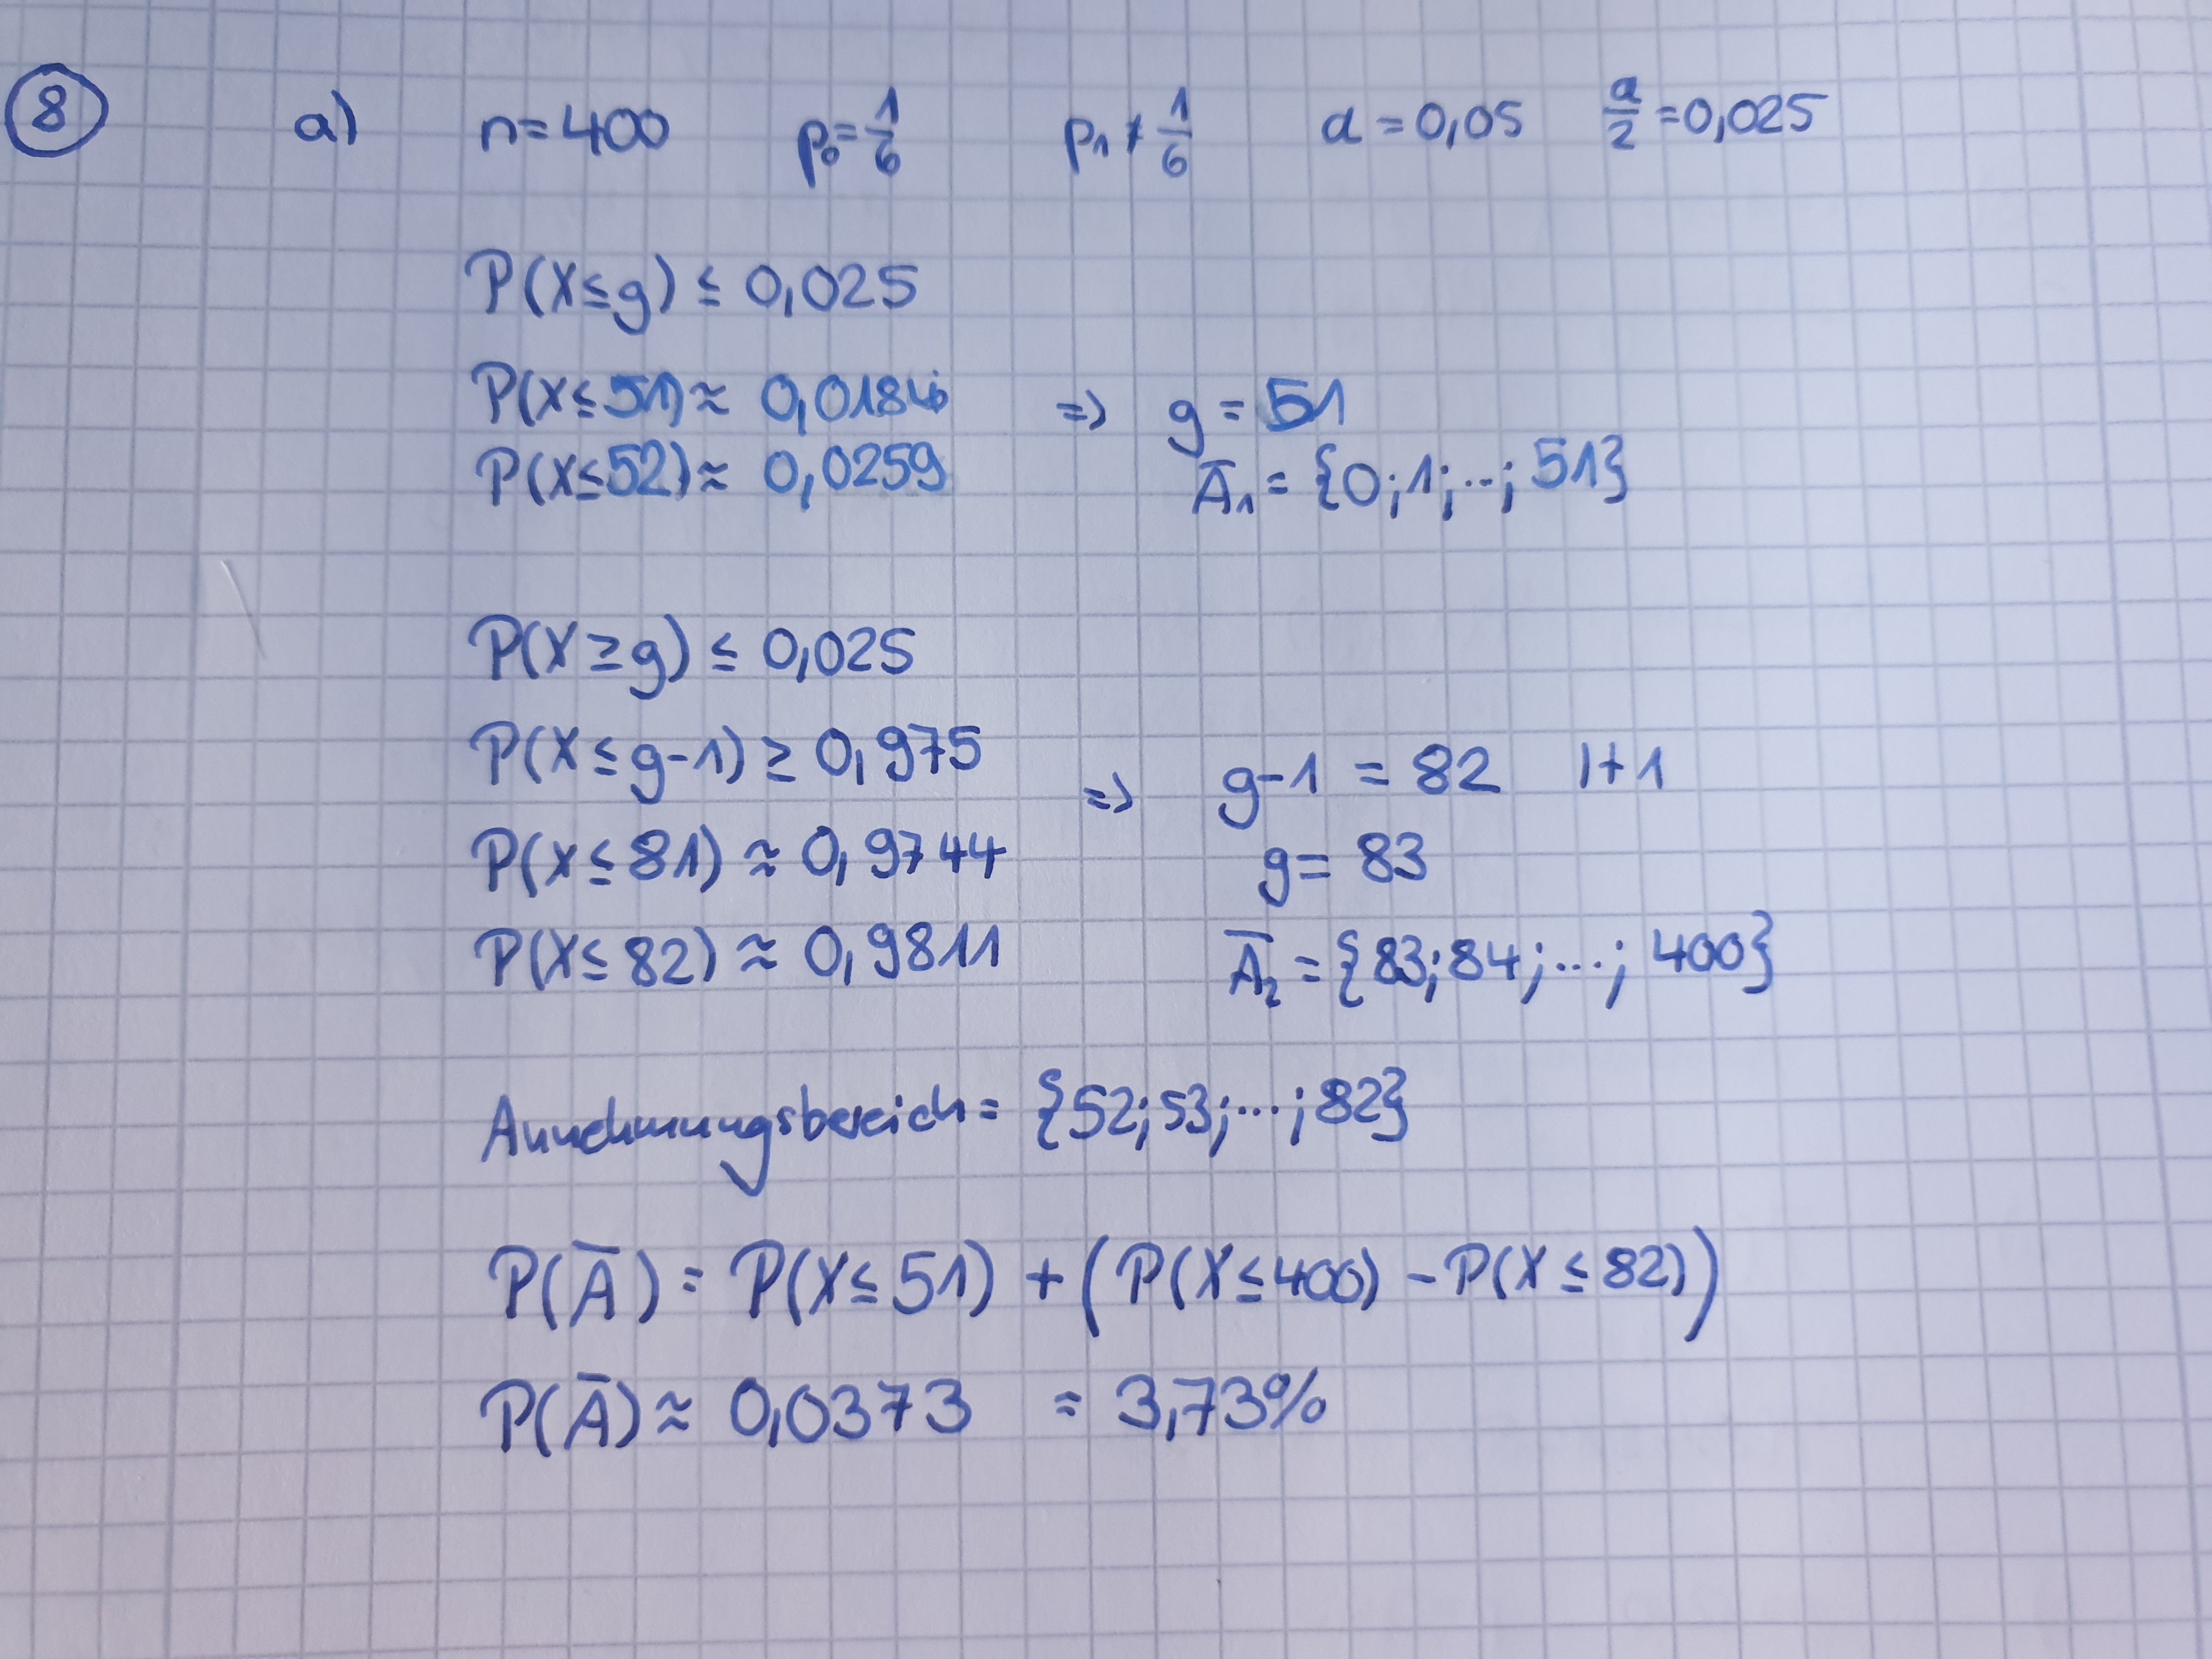 8 a) n=400 p₀=1/6 p₁≠1/6 α=0,05 α/2=0,025
P(X≤g) ≤ 0,025
P(X≤51)≈ 0,0184 => g = 51
P(X≤52)≈ 0,0259 A̅₁ = {0;1;...;51}
P(X≥g) ≤ 0,025
P(X≤g-1) ≥ 0,975 => g-1 = 82 |+1
P(X≤81) ≈ 0,9744 g= 83
P(X≤82) ≈ 0,9811 A̅₂ = {83;84;...; 400}
Annehmungsbereich= {52;53;...;82}
P(A̅) = P(X≤51) + (P(X≤400) - P(X≤82))
P(A̅) ≈ 0,0373 = 3,73%